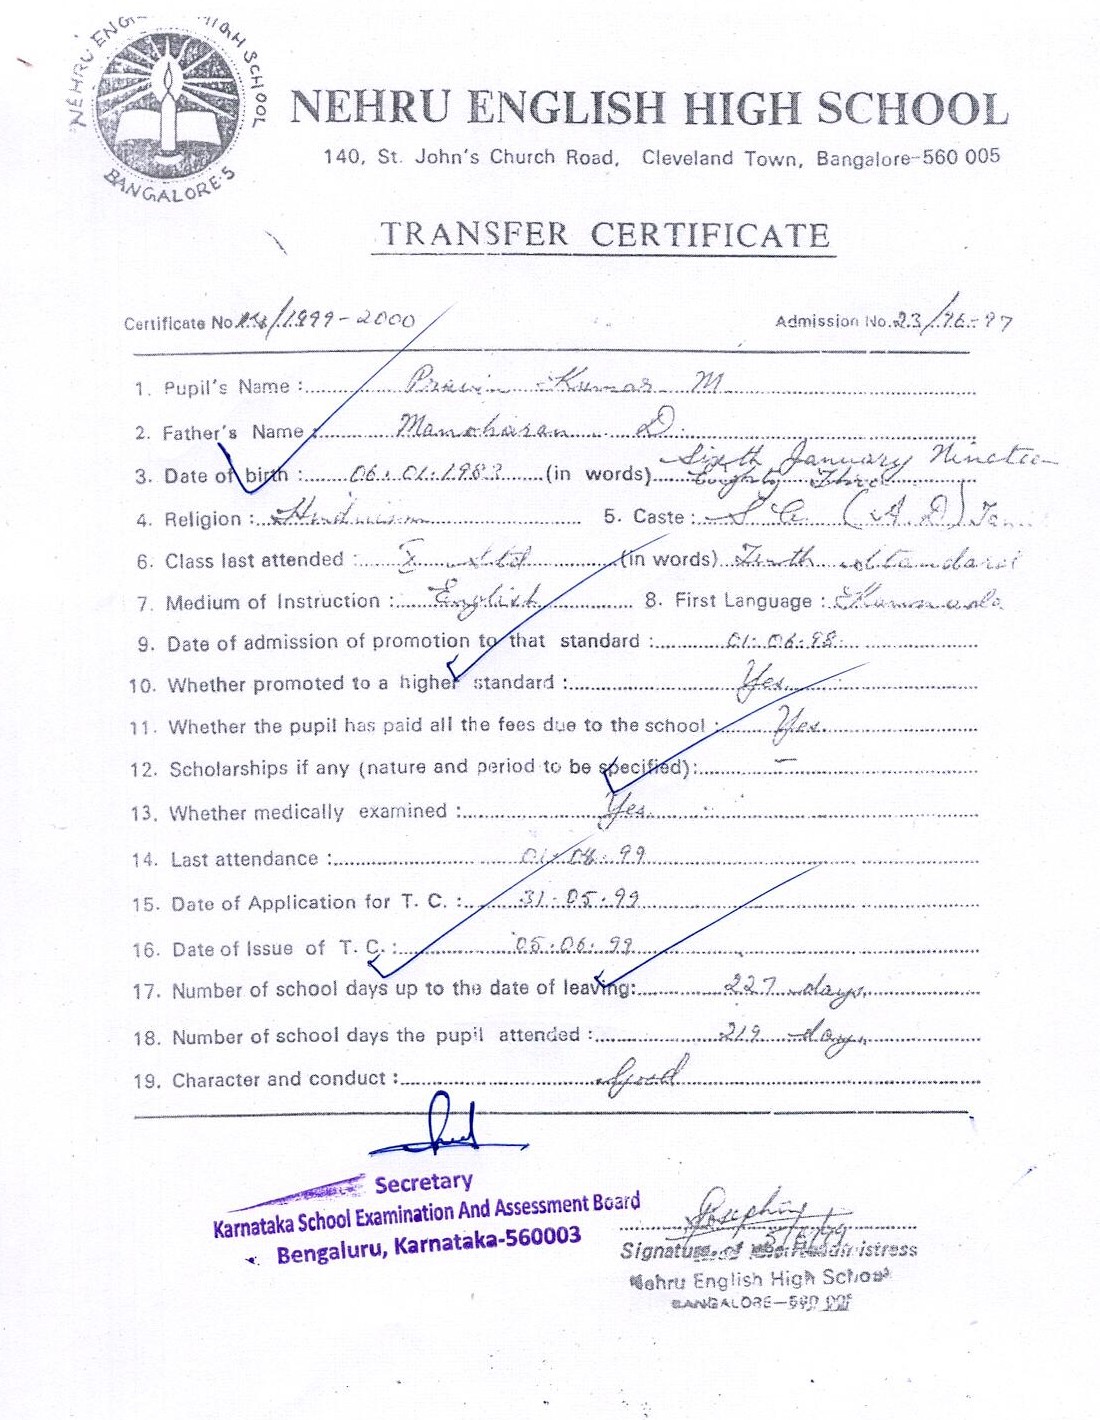 NEHRU ENGLISH HIGH SCHOOL
BANGALORE-5
NEHRU ENGLISH HIGH SCHOOL
140, St. John's Church Road, Cleveland Town, Bangalore-560 005
TRANSFER CERTIFICATE
Certificate No. /1999-2000 Admission No. 23/96-97
1. Pupil's Name : Pravin Kumar M
2. Father's Name : Manoharan D.
3. Date of birth : 06.01.1983 (in words) Sixth January Nineteen
Eighty Three
4. Religion : Hinduism 5. Caste : S C (A.D)
6. Class last attended : X Std (in words) Tenth Standard
7. Medium of Instruction : English 8. First Language : Kannada
9. Date of admission of promotion to that standard : 01.06.98.
10. Whether promoted to a higher standard : Yes
11. Whether the pupil has paid all the fees due to the school : Yes.
12. Scholarships if any (nature and period to be specified): —
13. Whether medically examined : Yes.
14. Last attendance : 99
15. Date of Application for T. C. : 31.05.99
16. Date of Issue of T. C. : 05.06.99
17. Number of school days up to the date of leaving: 227 days.
18. Number of school days the pupil attended : 219 days.
19. Character and conduct : Good
Secretary
Karnataka School Examination And Assessment Board
Bengaluru, Karnataka-560003
5/6/99
Signature of
Nehru English High School
BANGALORE-560 005